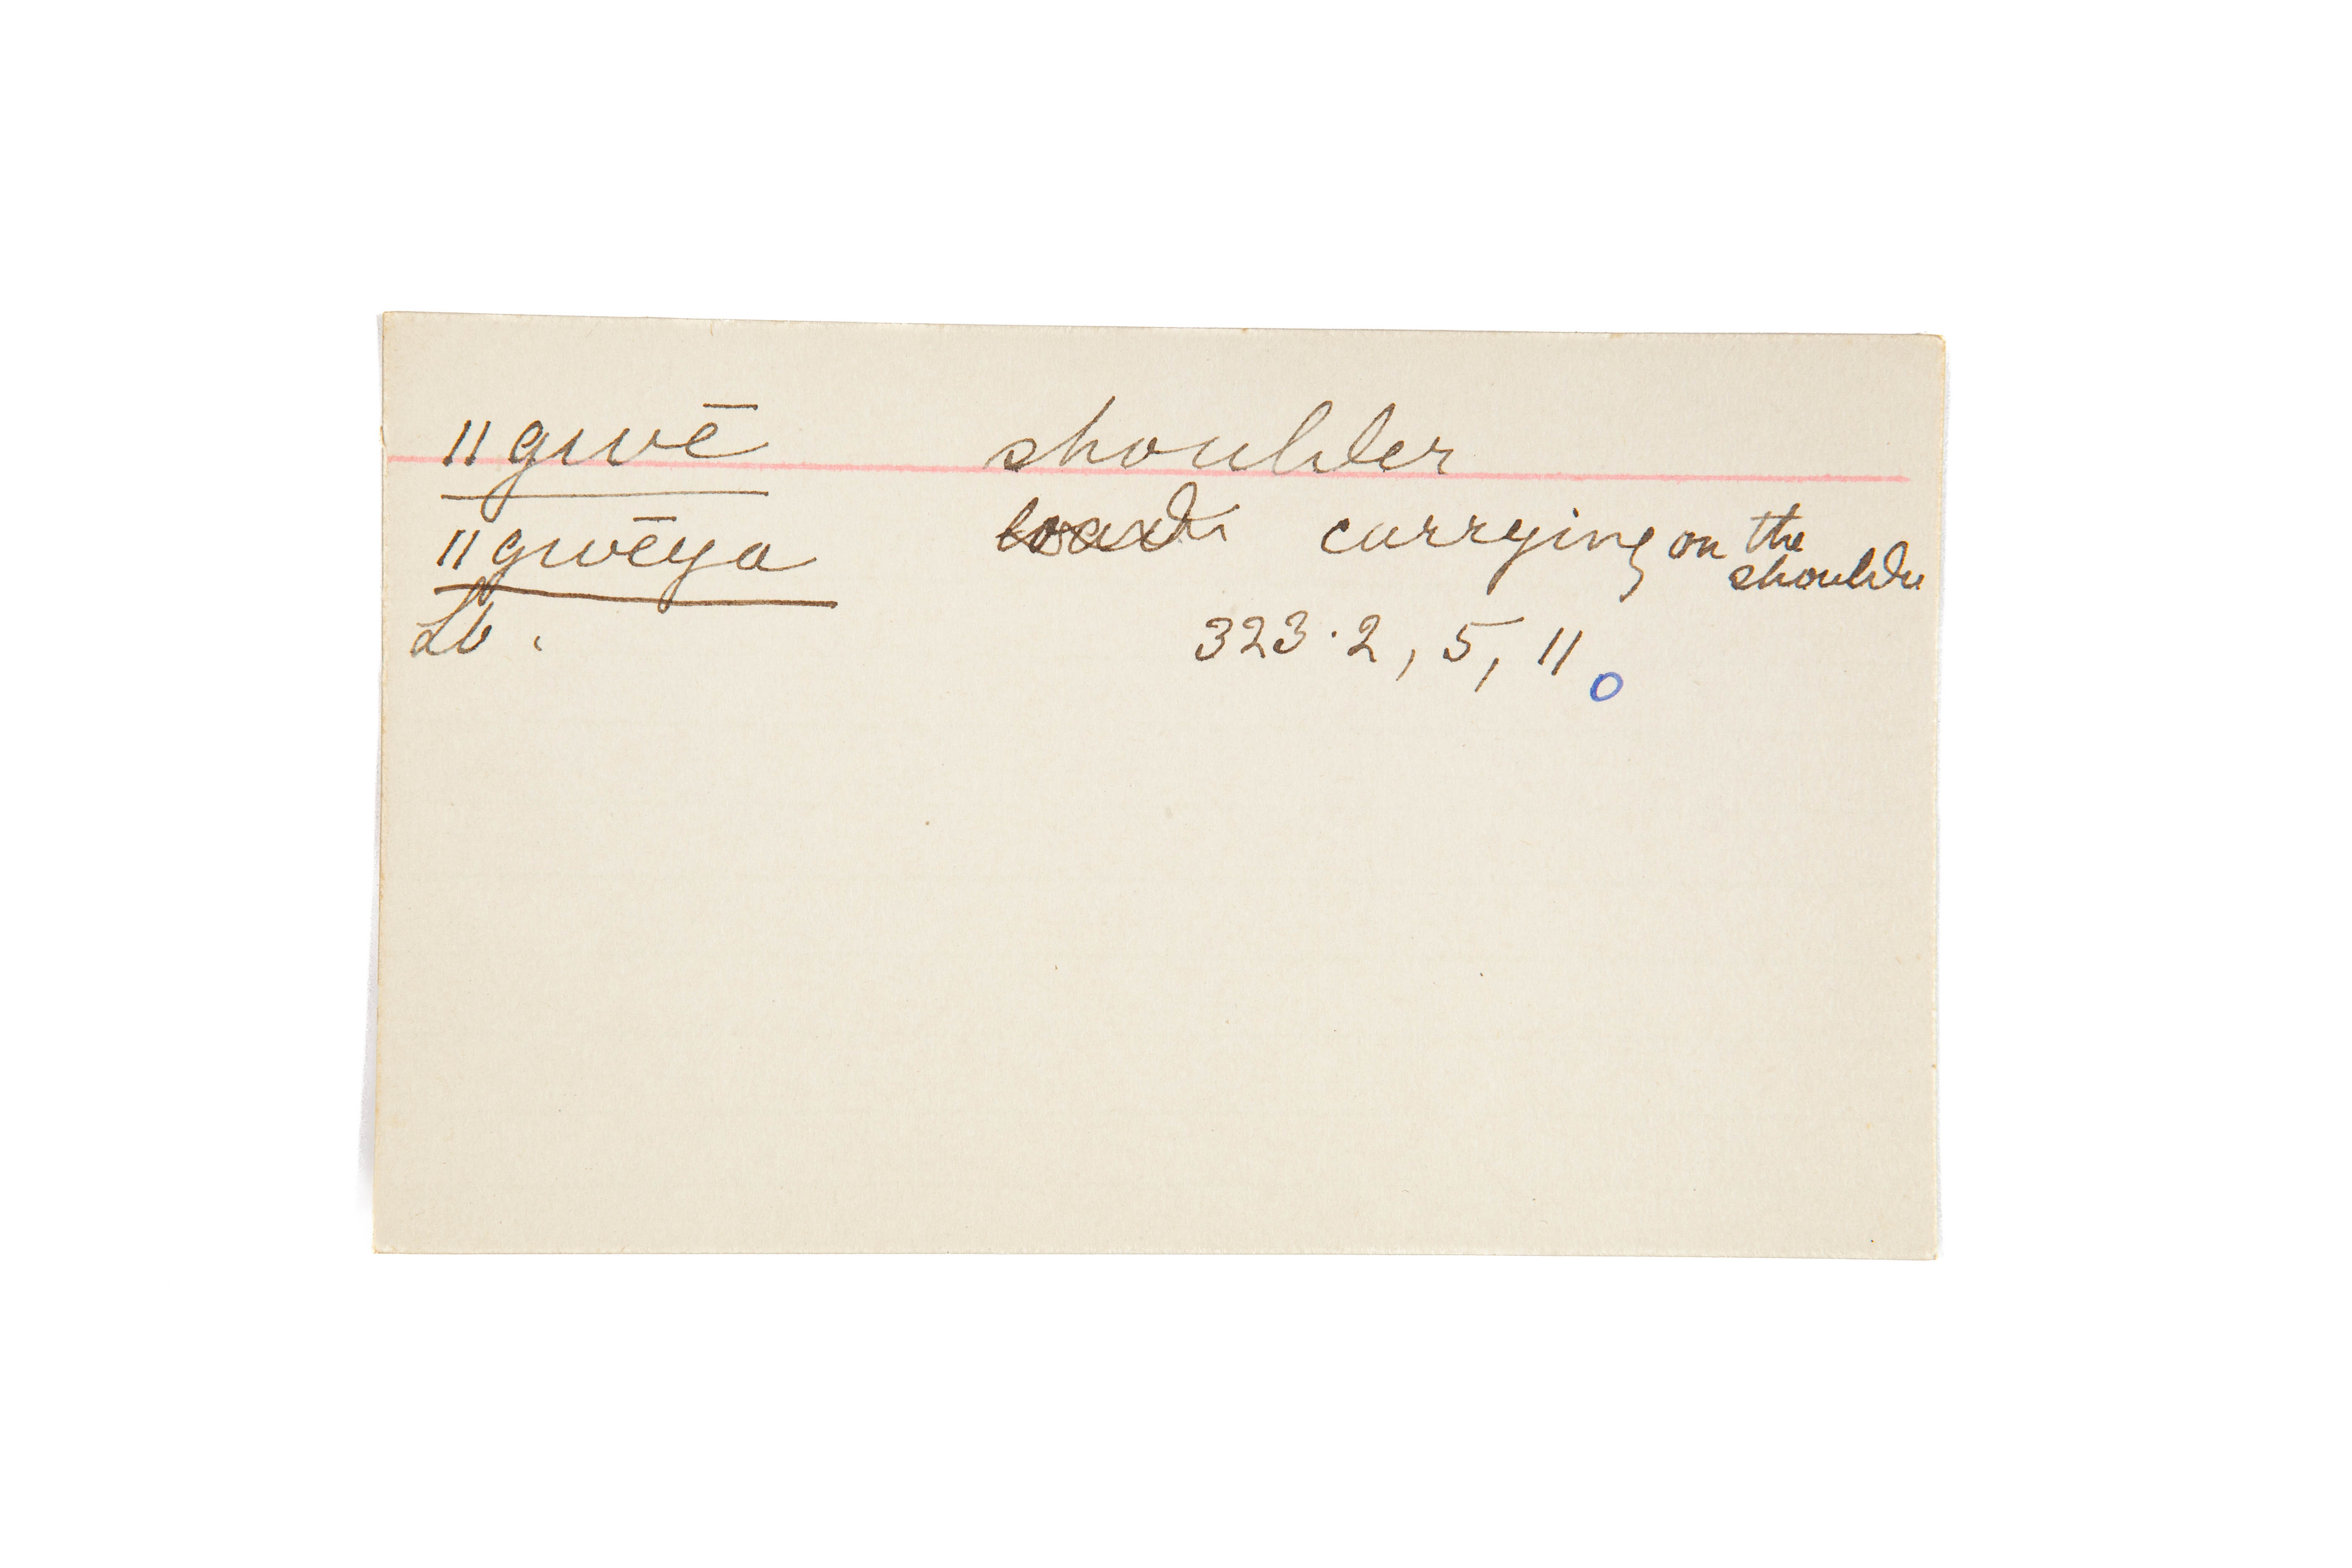 ǁgwē shoulder
ǁgwēya carrying on the shoulder
Lb. 323·2, 5, 11